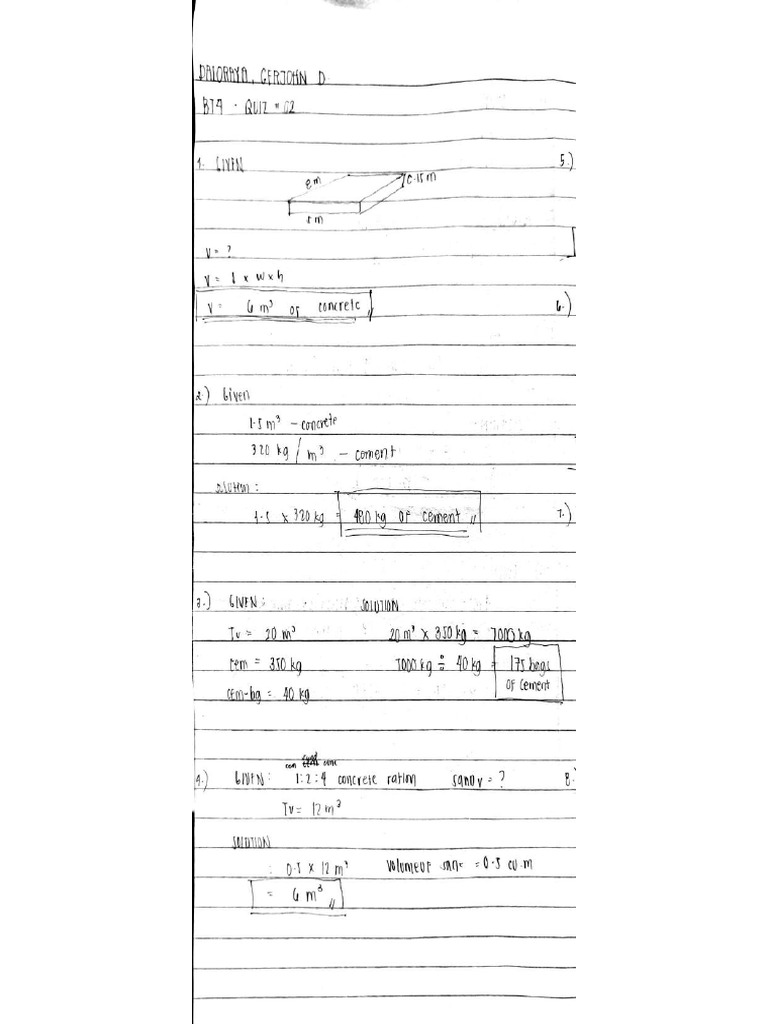 DALORAYA, GERJOHN D.
BT4 - QUIZ # 02
1. GIVEN
5.)
8 m
0.15 m
5 m
V = ?
V = l x w x h
V = 6 m³ of concrete
6.)
2.) Given
1.5 m³ - concrete
320 kg / m³ - cement
solution :
1.5 x 320 kg = 480 kg of cement
7.)
3.) GIVEN : SOLUTION
Tv = 20 m³ 20 m³ x 350 kg = 7000 kg
cem = 350 kg 7000 kg ÷ 40 kg = 175 bags
of cement
cem-bg = 40 kg
4.) GIVEN : 1:2:4 concrete ration sand v = ?
8.
Tv = 12 m³
SOLUTION
: 0.5 x 12 m³ Volume of san = 0.5 cu.m
= 6 m³